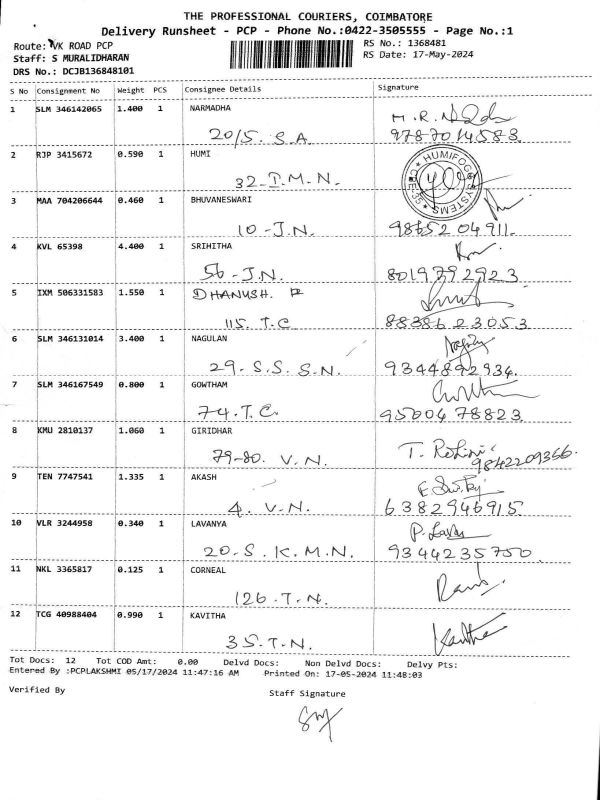 THE PROFESSIONAL COURIERS, COIMBATORE
Delivery Runsheet - PCP - Phone No.:0422-3505555 - Page No.:1
Route: VK ROAD PCP RS No.: 1368481
Staff: S MURALIDHARAN RS Date: 17-May-2024
DRS No.: DCJB136848101
S No Consignment No Weight PCS Consignee Details Signature
1 SLM 346142065 1.400 1 NARMADHA
20/5. S.A. 9787014583
2 RJP 3415672 0.590 1 HUMI HUMIFOG SYSTEMS CBE-35
32-P.M.N.
3 MAA 704206644 0.460 1 BHUVANESWARI
10-J.N. 9865204911
4 KVL 65398 4.400 1 SRIHITHA
56-J.N. 8019792923
5 IXM 506331583 1.550 1 DHANUSH. R
115. T.C 8838623053
6 SLM 346131014 3.400 1 NAGULAN
29. S.S. S.N. 9344892934
7 SLM 346167549 0.800 1 GOWTHAM Gowtham
74. T.C. 9500478823
8 KMU 2810137 1.060 1 GIRIDHAR T. Rohini
79-80. V.N. 9842209366
9 TEN 7747541 1.335 1 AKASH
4. V.N. 6382946915
10 VLR 3244958 0.340 1 LAVANYA
20-S.K.M.N. 9344235750
11 NKL 3365817 0.125 1 CORNEAL
126. T.N.
12 TCG 40988404 0.990 1 KAVITHA Kavitha
35. T.N.
Tot Docs: 12 Tot COD Amt: 0.00 Delvd Docs: Non Delvd Docs: Delvy Pts:
Entered By :PCPLAKSHMI 05/17/2024 11:47:16 AM Printed On: 17-05-2024 11:48:03
Verified By Staff Signature